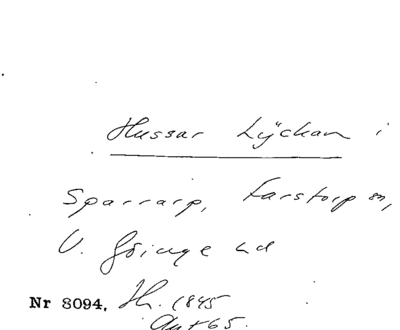 Hussar Lyckan i
Sparrarp, Farstorp sn,
V. Göinge hd
Nr 8094. Th. 1845
Ant 65.